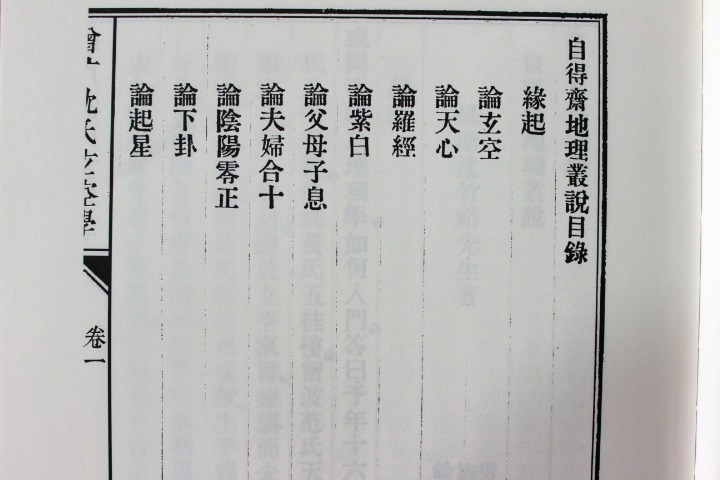 自得齋地理叢說目錄
緣起
論玄空
論天心
論羅經
論紫白
論父母子息
論夫婦合十
論陰陽零正
論下卦
論起星
沈氏玄空學
卷一